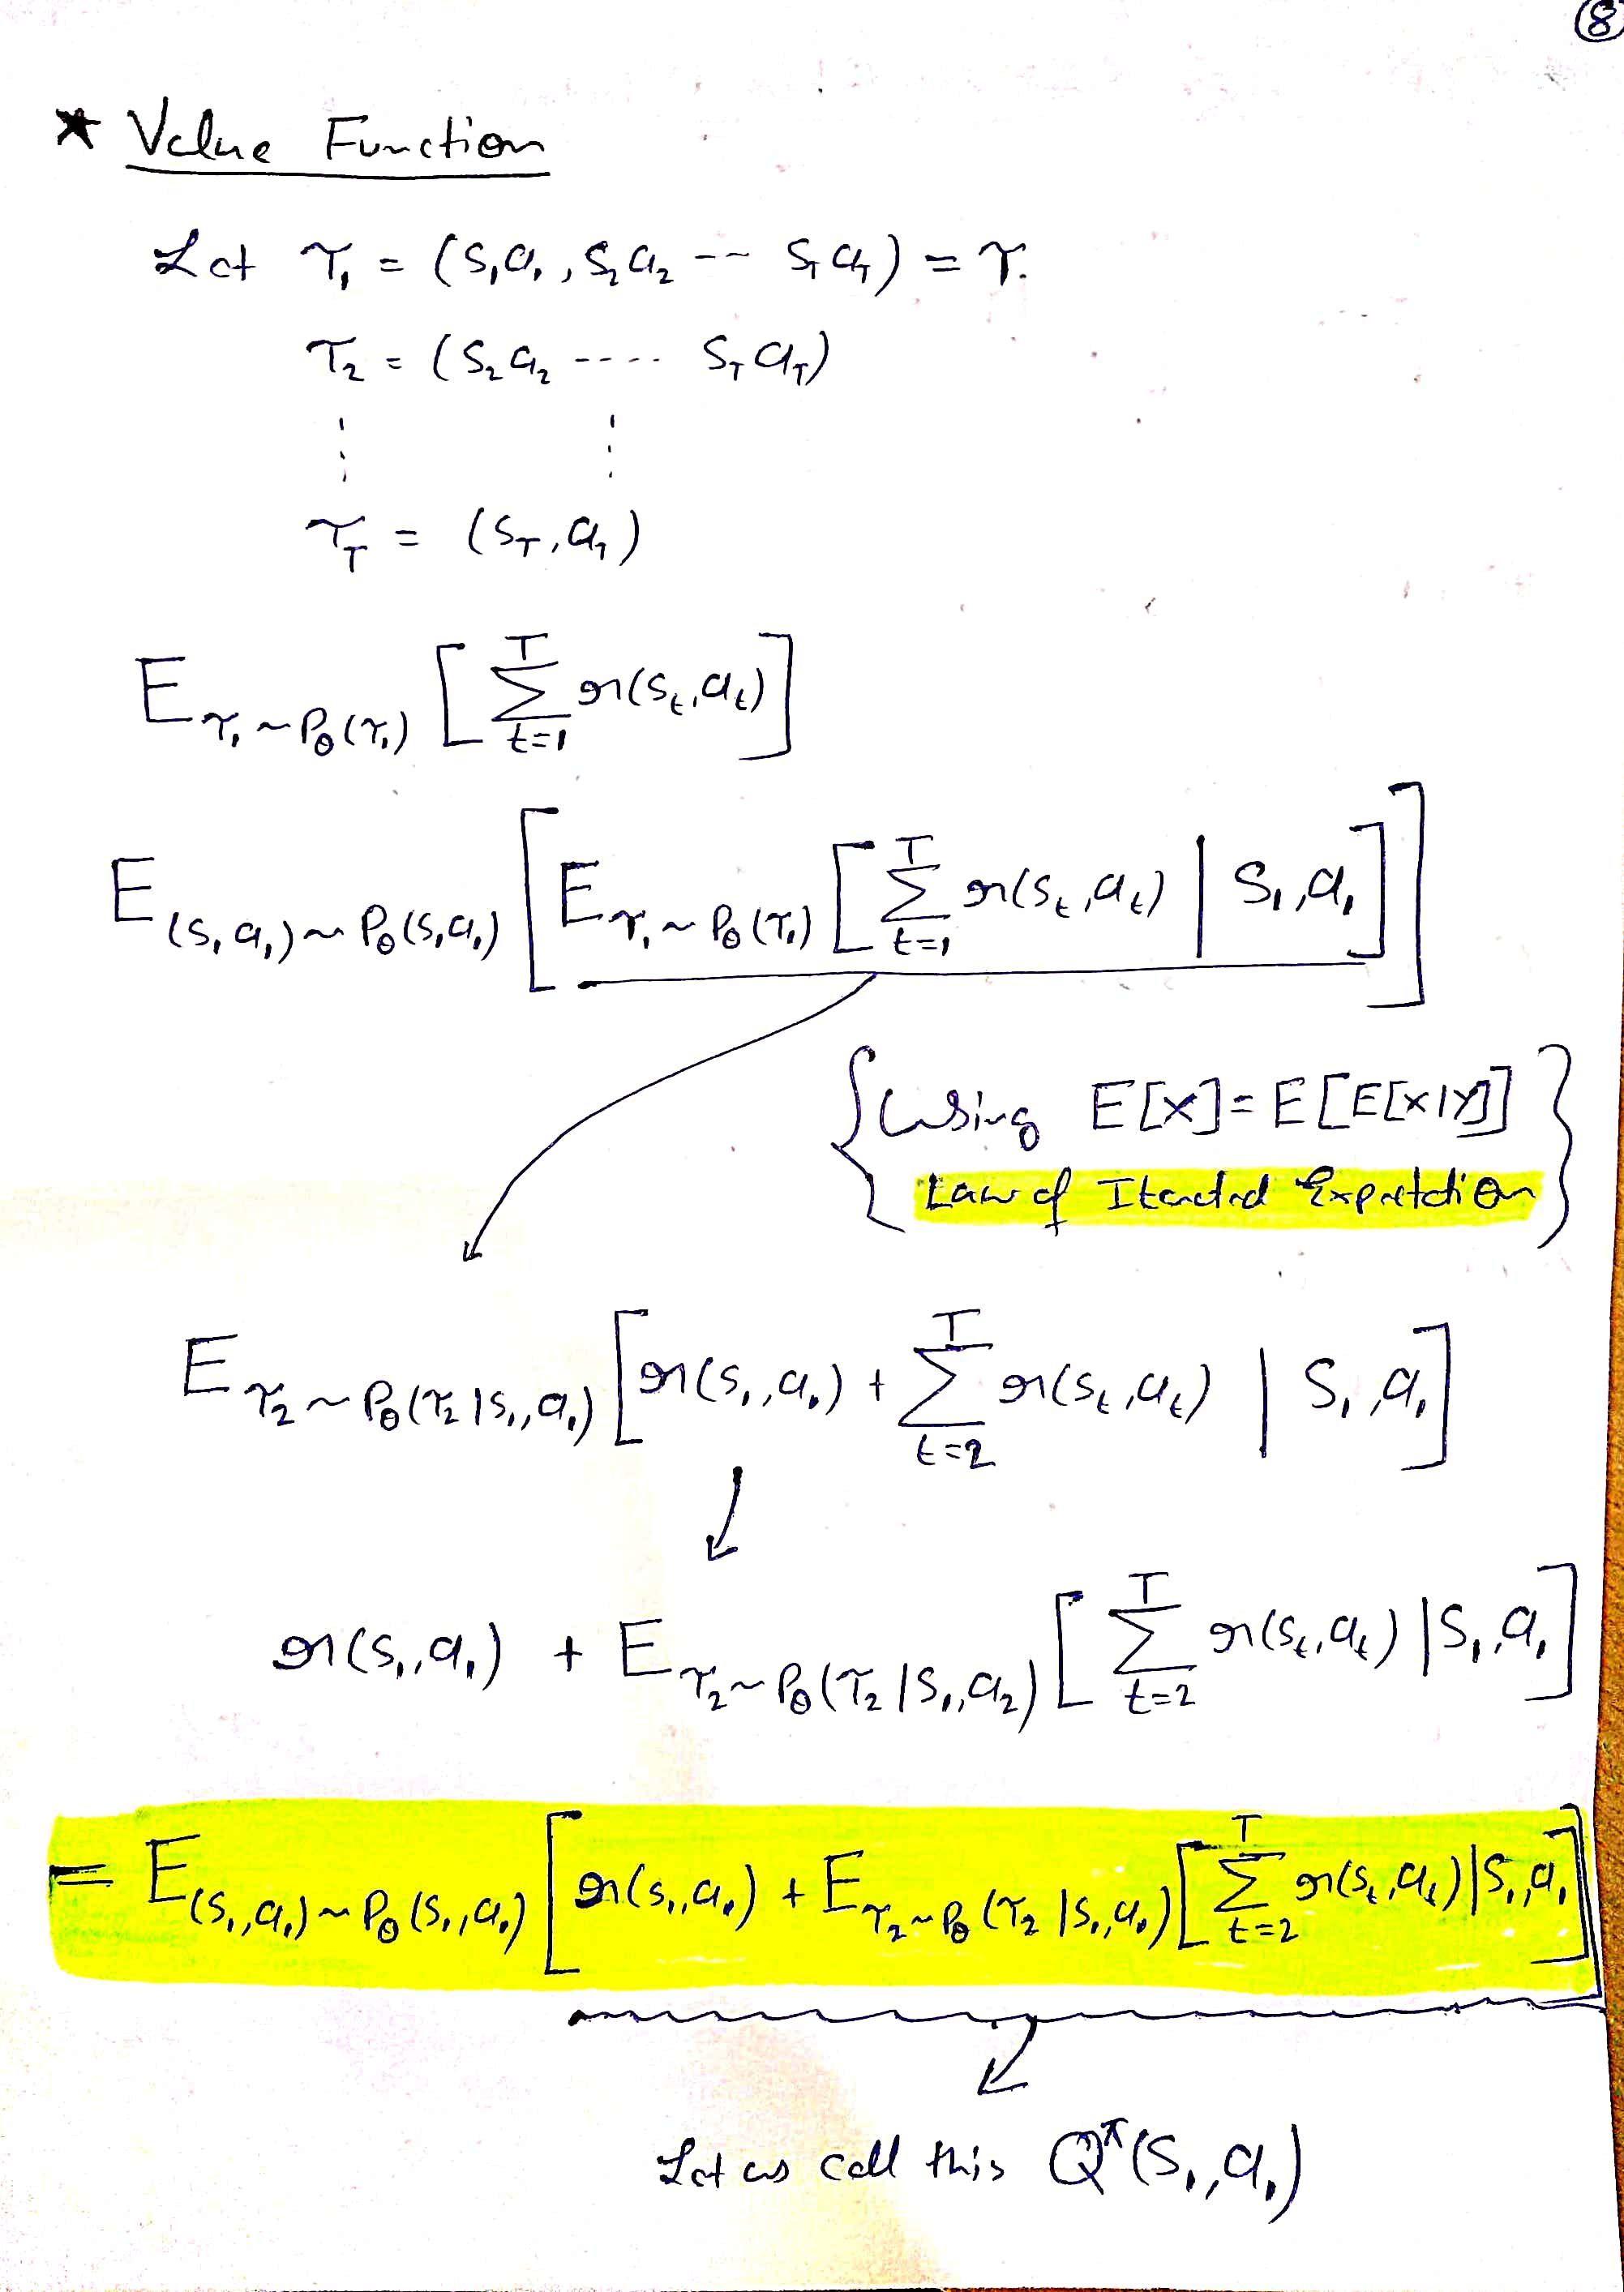 ⑧
* Value Function
Let τ₁ = (s₁a₁, s₂a₂ -- s_T a_T) = τ.
τ₂ = (s₂a₂ ---- s_T a_T)
⋮ ⋮
τ_T = (s_T, a_T)
E_{τ₁~P_θ(τ₁)} [ Σ_{t=1}^{T} r(s_t, a_t) ]
E_{(s₁a₁)~P_θ(s₁a₁)} [ E_{τ₁~P_θ(τ₁)} [ Σ_{t=1}^{T} r(s_t, a_t) | s₁, a₁ ] ]
{ Using E[X] = E[E[X|Y]]
Law of Iterated Expectation }
E_{τ₂~P_θ(τ₂|s₁,a₁)} [ r(s₁, a₁) + Σ_{t=2}^{T} r(s_t, a_t) | s₁, a₁ ]
r(s₁, a₁) + E_{τ₂~P_θ(τ₂|s₁,a₂)} [ Σ_{t=2}^{T} r(s_t, a_t) | s₁, a₁ ]
= E_{(s₁,a₁)~P_θ(s₁,a₁)} [ r(s₁, a₁) + E_{τ₂~P_θ(τ₂|s₁,a₁)} [ Σ_{t=2}^{T} r(s_t, a_t) | s₁, a₁ ] ]
Let us call this Q^π(s₁, a₁)